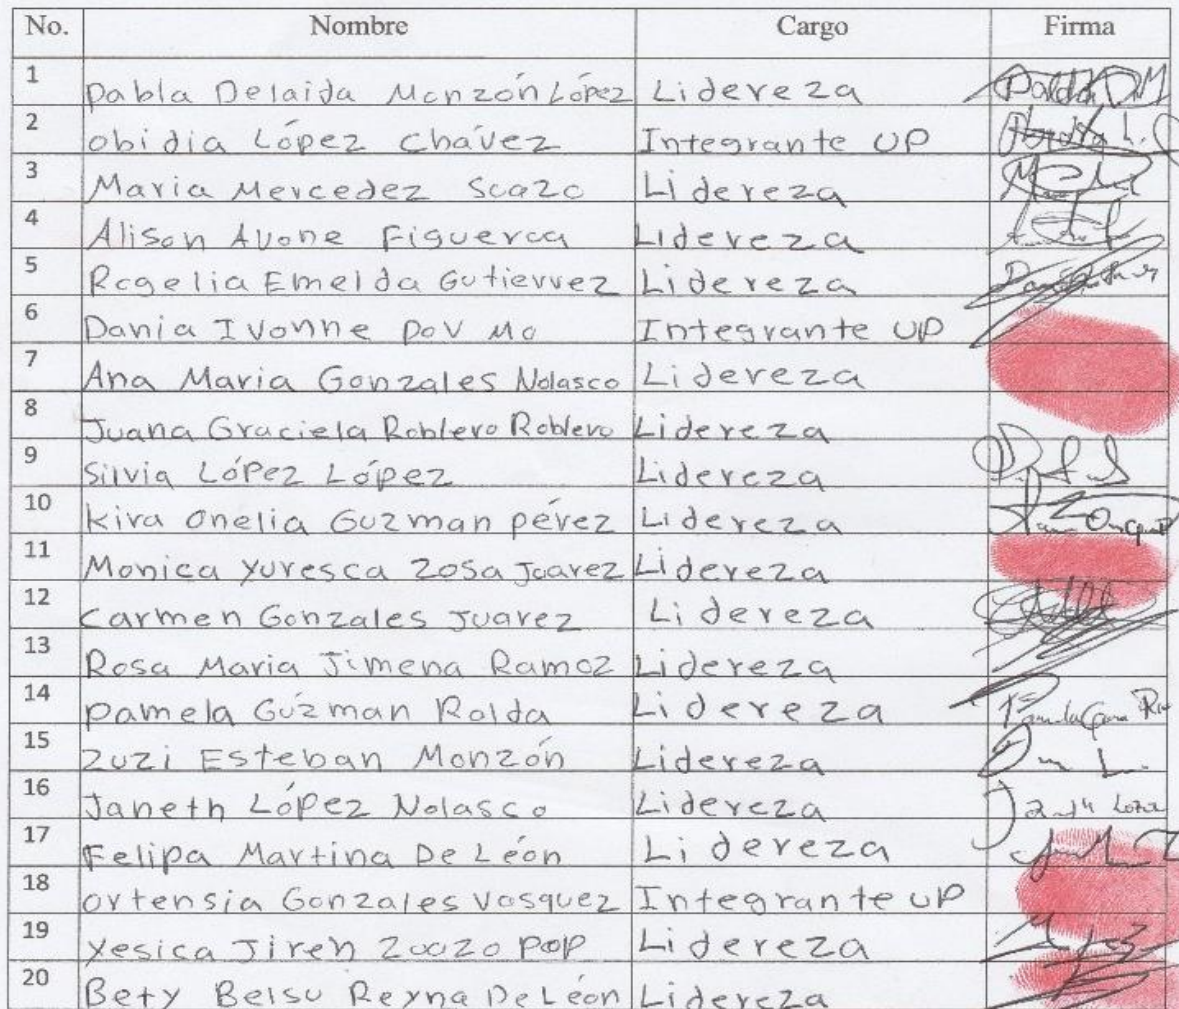 No. Nombre Cargo Firma
1 Pabla Delaida Monzón López Lidereza
2 Obidia López Chávez Integrante UP
3 Maria Mercedez Lidereza
4 Alison Avone Figueroa Lidereza
5 Rogelia Emelda Gutierrez Lidereza
6 Dania Ivonne Integrante UP
7 Ana Maria Gonzales Nolasco Lidereza
8 Juana Graciela Roblero Roblero Lidereza
9 Silvia López López Lidereza
10 Kira Onelia Guzman Pérez Lidereza
11 Monica Yuresca Zosa Juarez Lidereza
12 Carmen Gonzales Juarez Lidereza
13 Rosa Maria Jimena Ramoz Lidereza
14 Pamela Guzman Rolda Lidereza
15 Zuzi Esteban Monzón Lidereza
16 Janeth López Nolasco Lidereza
17 Felipa Martina De León Lidereza
18 Ortensia Gonzales Vasquez Integrante UP
19 Yesica Jireh POP Lidereza
20 Bety Belsu Reyna De León Lidereza